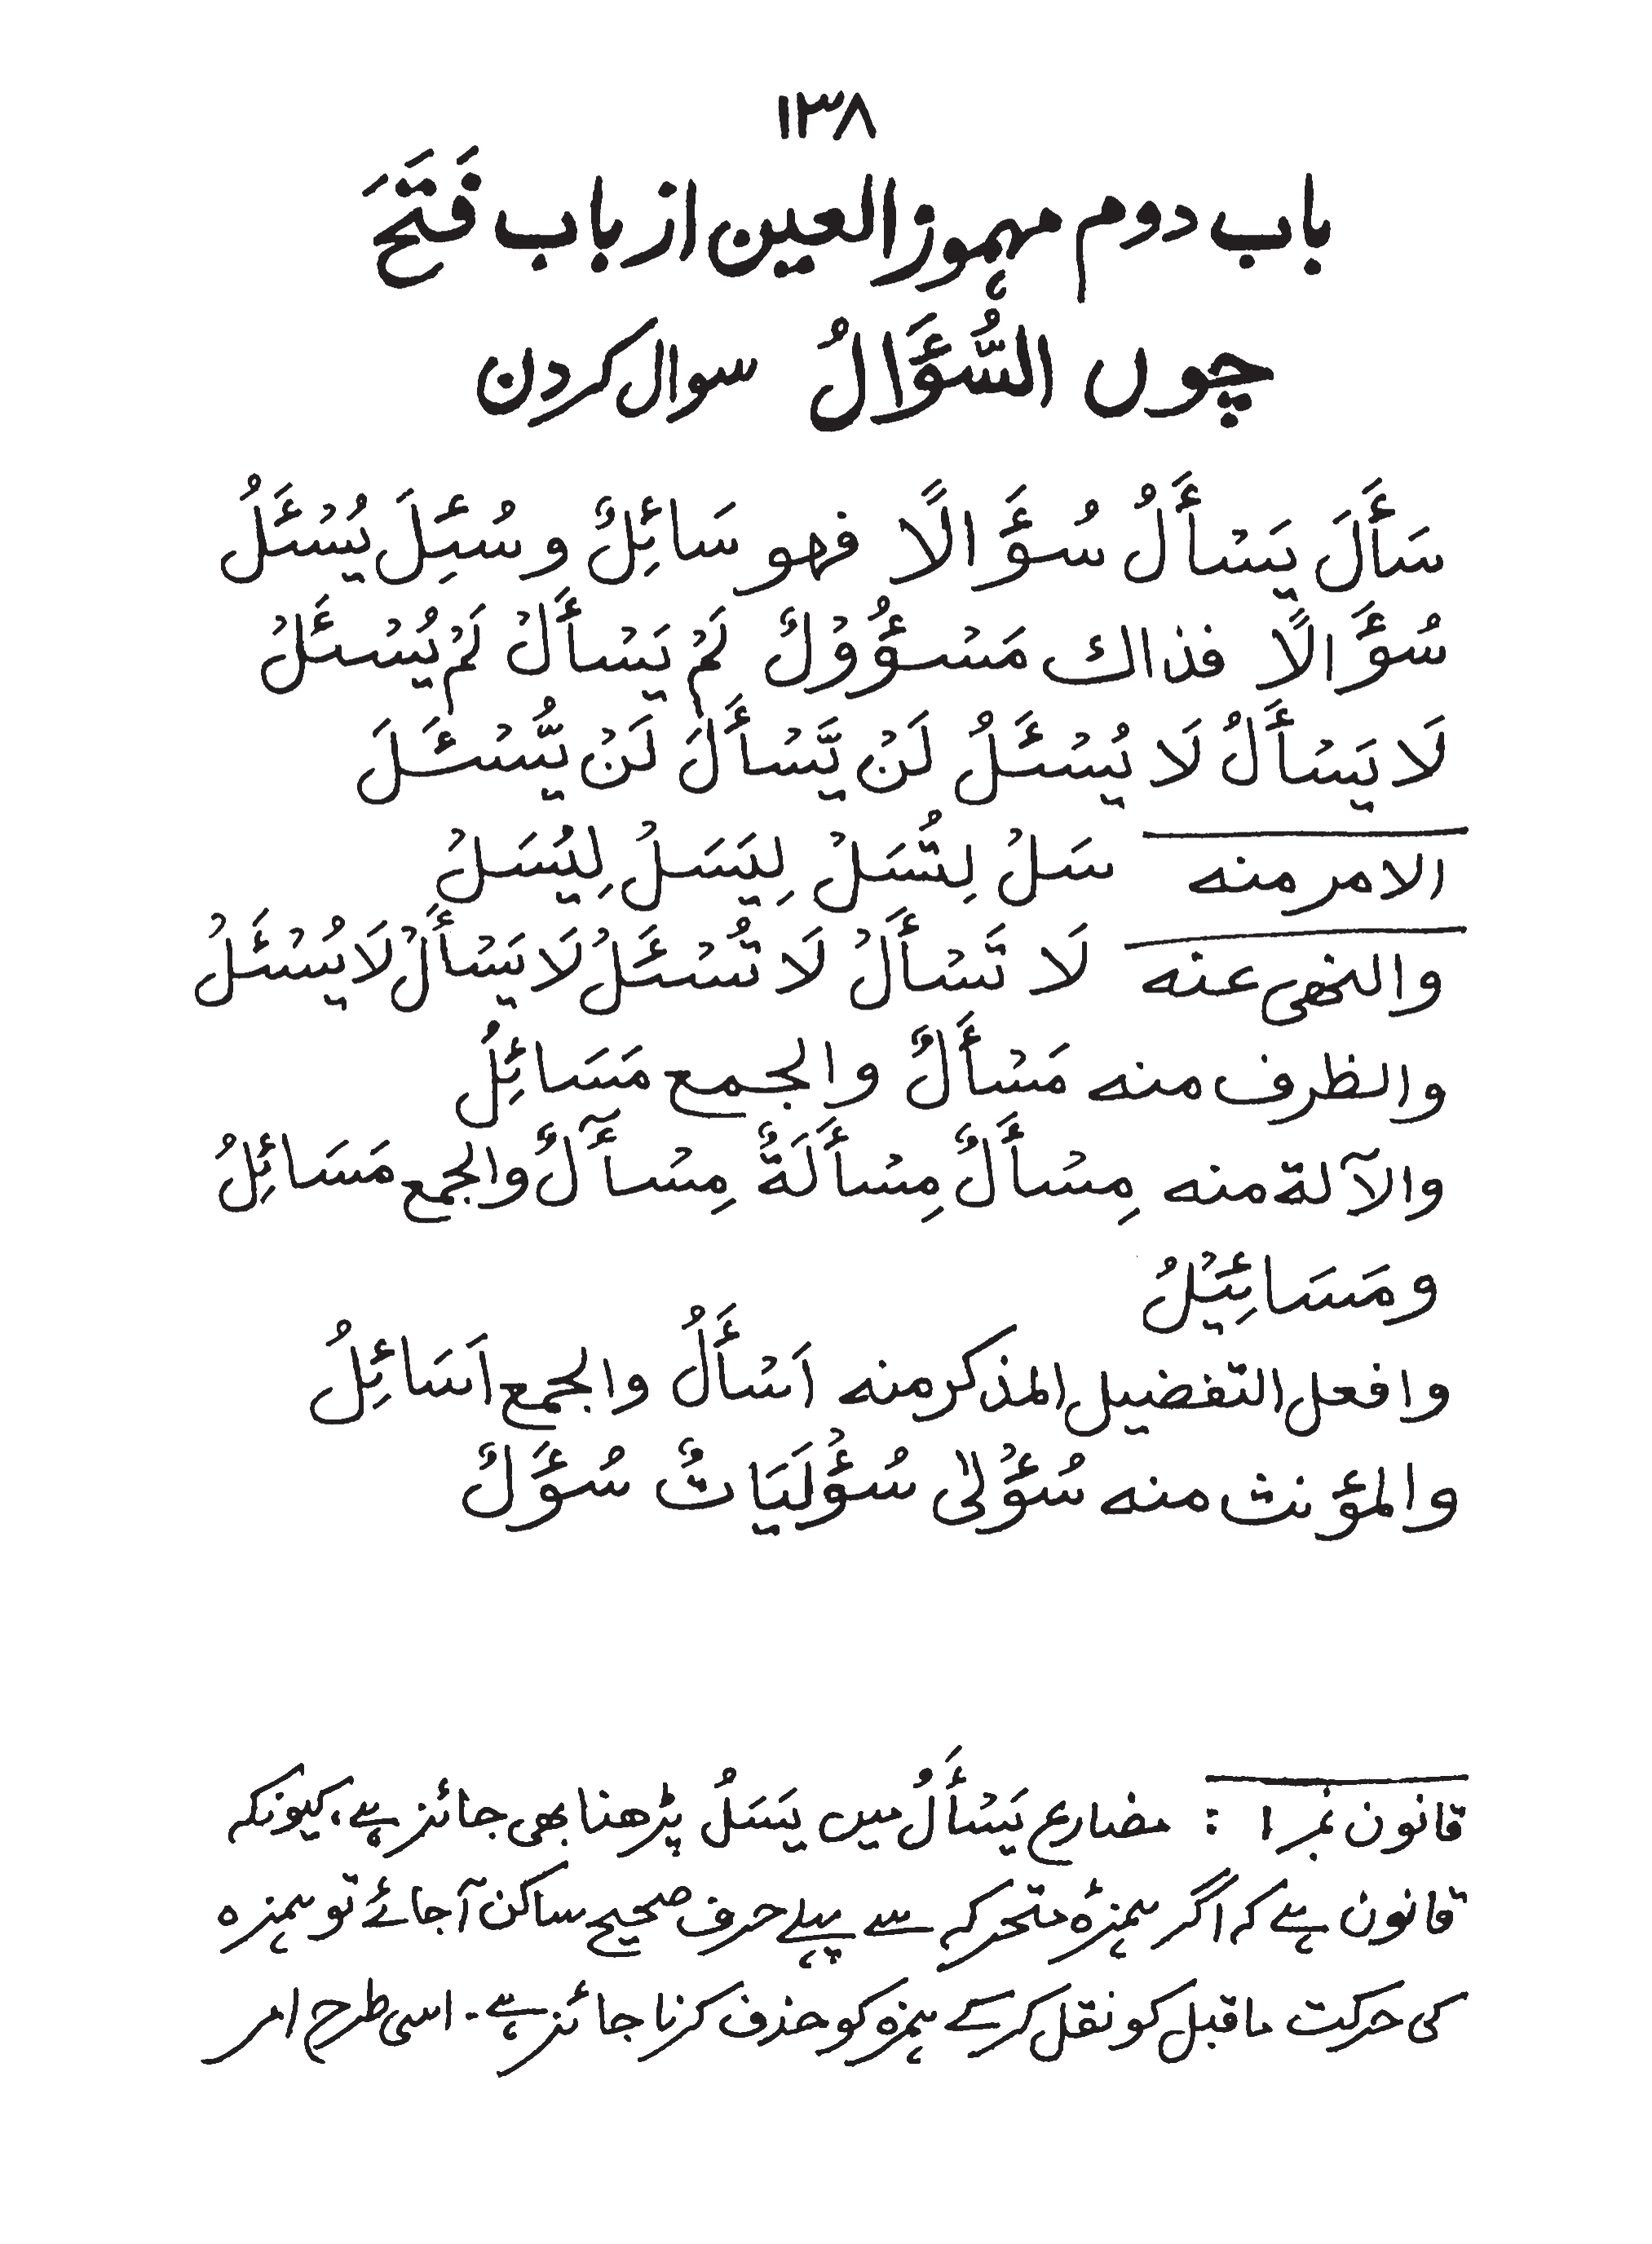 ١٣٨
باب دوم مہموز العین از باب فَتَحَ
چوں السُّؤَالُ سوال کردن
سَأَلَ يَسْأَلُ سُؤَالًا فهو سَائِلٌ و سُئِلَ يُسْئَلُ
سُؤَالًا فذاك مَسْؤُوْلٌ لَمْ يَسْأَلْ لَمْ يُسْئَلْ
لَا يَسْأَلُ لَا يُسْئَلُ لَنْ يَّسْأَلَ لَنْ يُّسْئَلَ
الامر منه سَلْ لِتُسَلْ لِيَسَلْ لِيُسَلْ
والنهى عنه لَا تَسْأَلْ لَا تُسْئَلْ لَا يَسْأَلْ لَا يُسْئَلْ
والظرف منه مَسْأَلٌ والجمع مَسَائِلُ
والآلة منه مِسْأَلٌ مِسْأَلَةٌ مِسْآلٌ والجمع مَسَائِلُ
و مَسَائِيْلُ
وافعل التفضيل المذكر منه اَسْأَلُ والجمع اَسَائِلُ
والمؤنث منه سُؤْلٰى سُؤْلَيَاتٌ سُؤَلٌ
قانون نمبر ۱ : مضارع يَسْأَلُ میں يَسَلُ پڑھنا بھی جائز ہے، کیونکہ
قانون ہے کہ اگر ہمزۂ متحرکہ سے پہلے حرف صحیح ساکن آجائے تو ہمزہ
کی حرکت ماقبل کو نقل کرکے ہمزہ کو حذف کرنا جائز ہے۔ اسی طرح امر